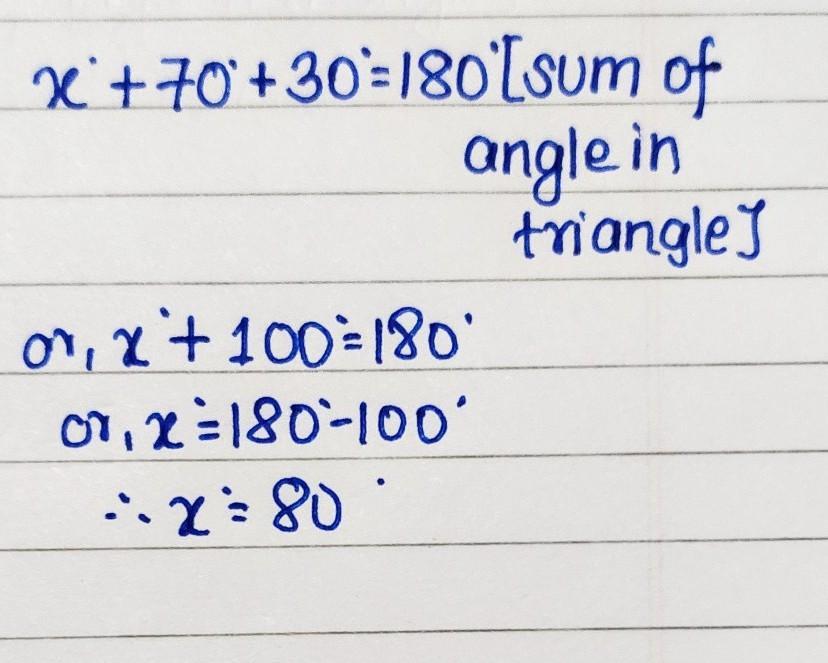 x° + 70° + 30° = 180° [sum of
angle in
triangle]
or, x° + 100° = 180°
or, x° = 180° - 100°
∴ x° = 80°